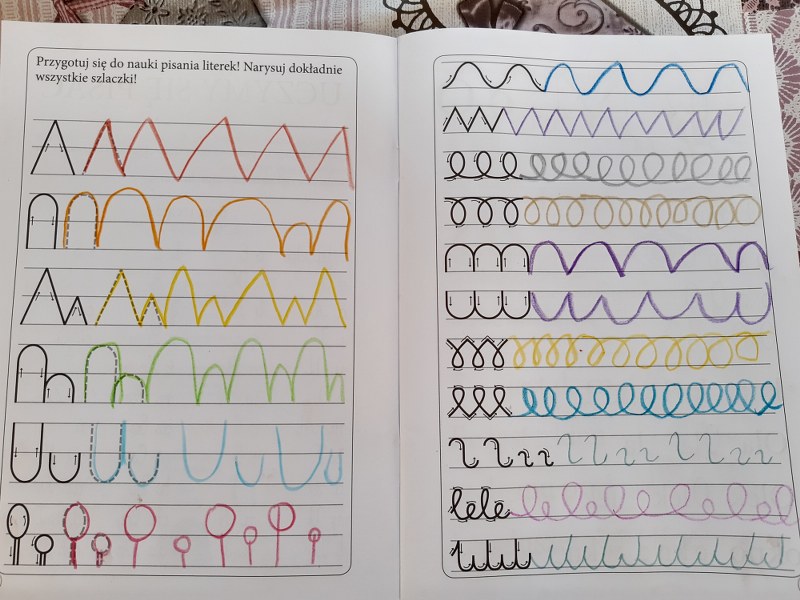 Przygotuj się do nauki pisania literek! Narysuj dokładnie
wszystkie szlaczki!